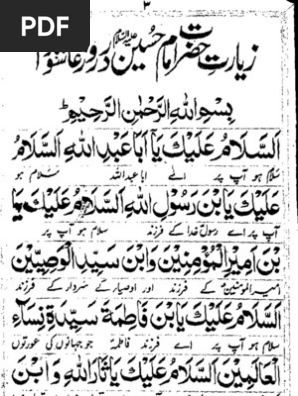 PDF
۳
زیارت حضرت امام حسین علیہ السلام در روز عاشورا
بِسْمِ اللهِ الرَّحْمٰنِ الرَّحِيْمِ
اَلسَّلَامُ عَلَيْكَ يَا اَبَا عَبْدِ اللهِ اَلسَّلَامُ
سلام ہو آپ پر اے ابا عبداللہ سلام ہو
عَلَيْكَ يَا بْنَ رَسُوْلِ اللهِ اَلسَّلَامُ عَلَيْكَ يَا
آپ پر اے رسول خدا کے فرزند سلام ہو آپ پر
بْنَ اَمِيْرِ الْمُؤْمِنِيْنَ وَابْنَ سَيِّدِ الْوَصِيِّيْنَ
امیر المومنین کے فرزند اور اوصیاء کے سردار کے فرزند
اَلسَّلَامُ عَلَيْكَ يَا ابْنَ فَاطِمَةَ سَيِّدَةِ نِسَآءِ
سلام ہو آپ پر اے فرزند فاطمہ جو جہانوں کی عورتوں
الْعَالَمِيْنَ اَلسَّلَامُ عَلَيْكَ يَا ثَارَ اللهِ وَابْنَ